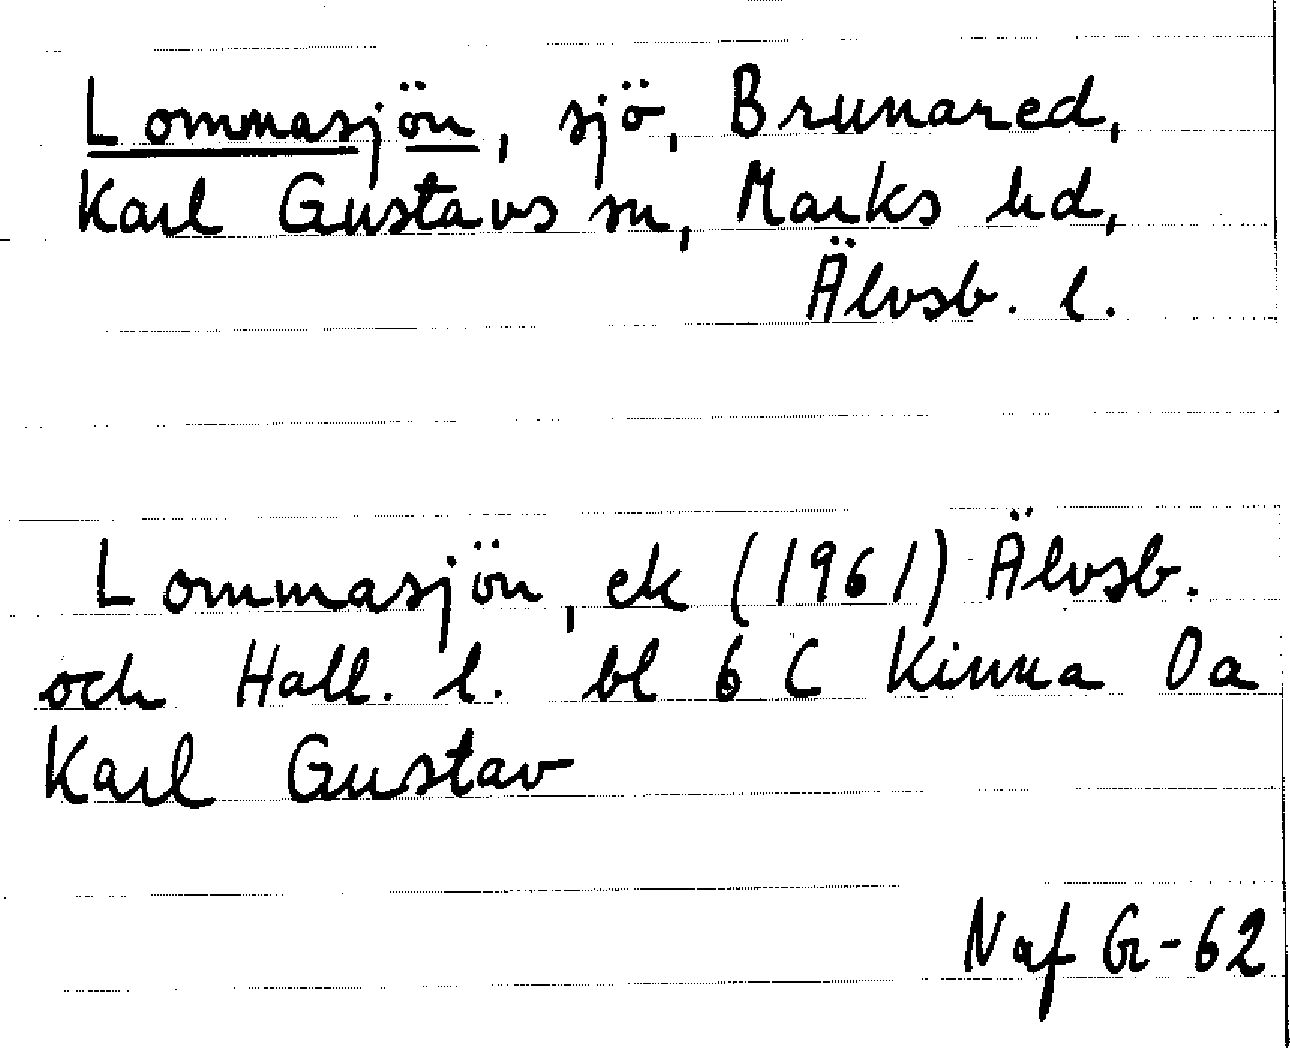 Lommasjön, sjö, Brunared,
Karl Gustavs sn, Marks hd,
Älvsb. l.
Lommasjön, ek (1961) Älvsb.
och Hall. l. bl 6 C Kinna Oa
Karl Gustav
Naf Gr-62